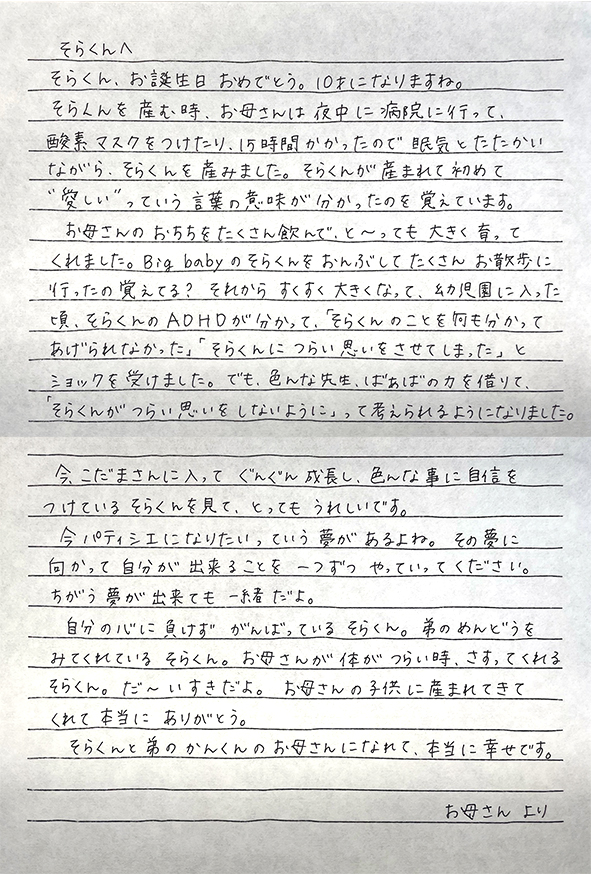 そらくんへ
そらくん、お誕生日 おめでとう。10才になりますね。
そらくんを 産む時、お母さんは 夜中に 病院に行って、
酸素 マスクをつけたり、15時間 かかったので 眠気とたたかい
ながら、そらくんを 産みました。そらくんが 産まれて 初めて
"愛しい"っていう 言葉の 意味が 分かったのを 覚えています。
お母さんの おちちを たくさん飲んで、と〜っても 大きく 育って
くれました。Big babyの そらくんを おんぶして たくさん お散歩に
行ったの 覚えてる? それから すくすく 大きくなって、幼児園に 入った
頃、そらくんの ADHDが 分かって、「そらくんのことを 何も分かって
あげられなかった」「そらくんに つらい 思いを させてしまった」と
ショックを 受けました。でも、色んな先生、ばあばの力を 借りて、
「そらくんが つらい思いを しないように」って 考えられるようになりました。
今、こだまさんに入って ぐんぐん 成長し、色んな 事に 自信を
つけている そらくんを 見て、とっても うれしいです。
今 パティシエになりたい っていう 夢が あるよね。その夢に
向かって 自分が 出来ることを 一つずつ やっていって ください。
ちがう 夢が 出来ても 一緒 だよ。
自分の心に 負けず がんばっている そらくん。弟の めんどうを
みてくれている そらくん。お母さんが 体が つらい時、さすってくれる
そらくん。だ〜いすきだよ。お母さんの 子供に 産まれてきて
くれて 本当に ありがとう。
そらくんと 弟の かんくんの お母さんになれて、本当に 幸せです。
お母さん より